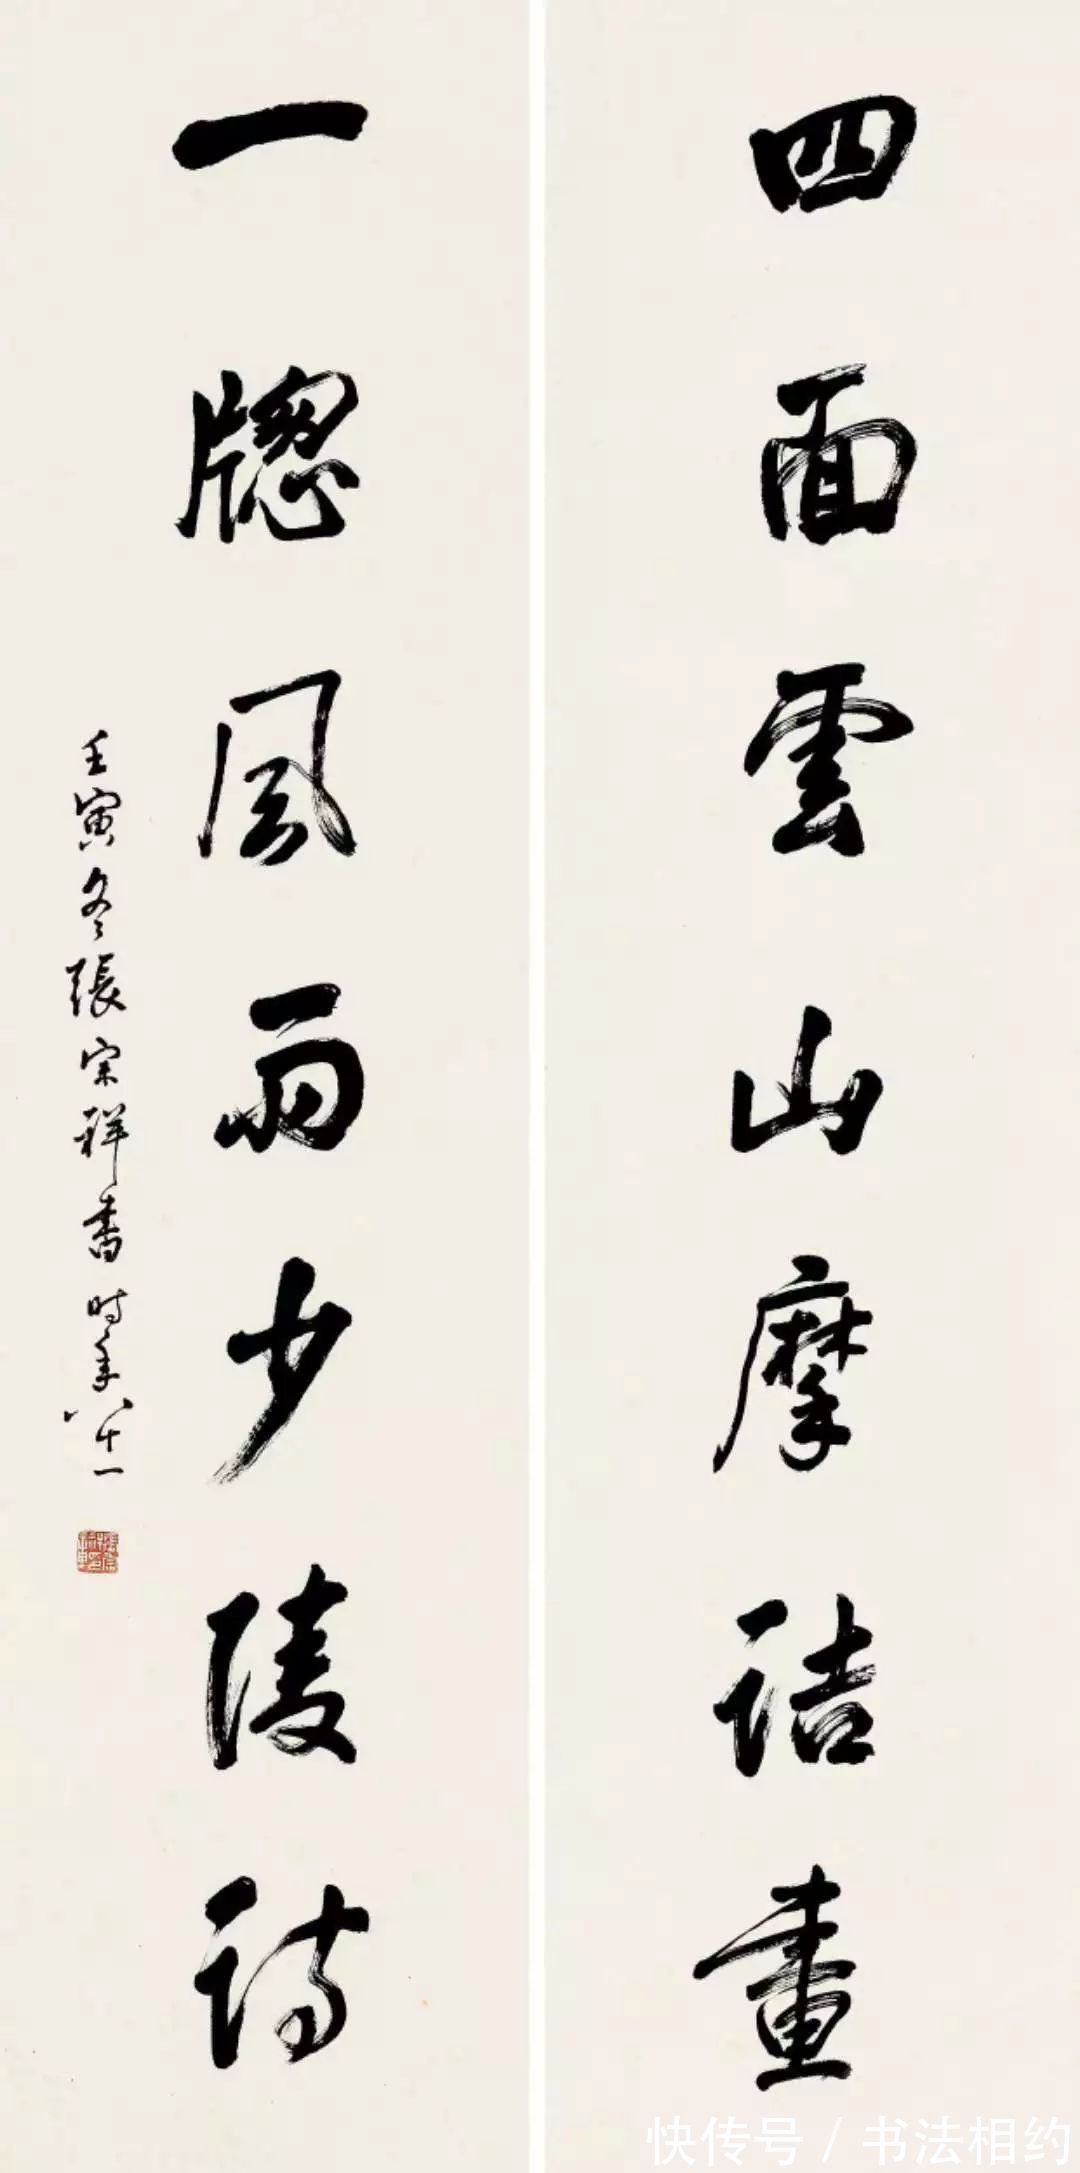 四面雲山摩詰畫
一牕風雨少陵詩
壬寅冬張宗祥書時年八十一
快传号 / 书法相约